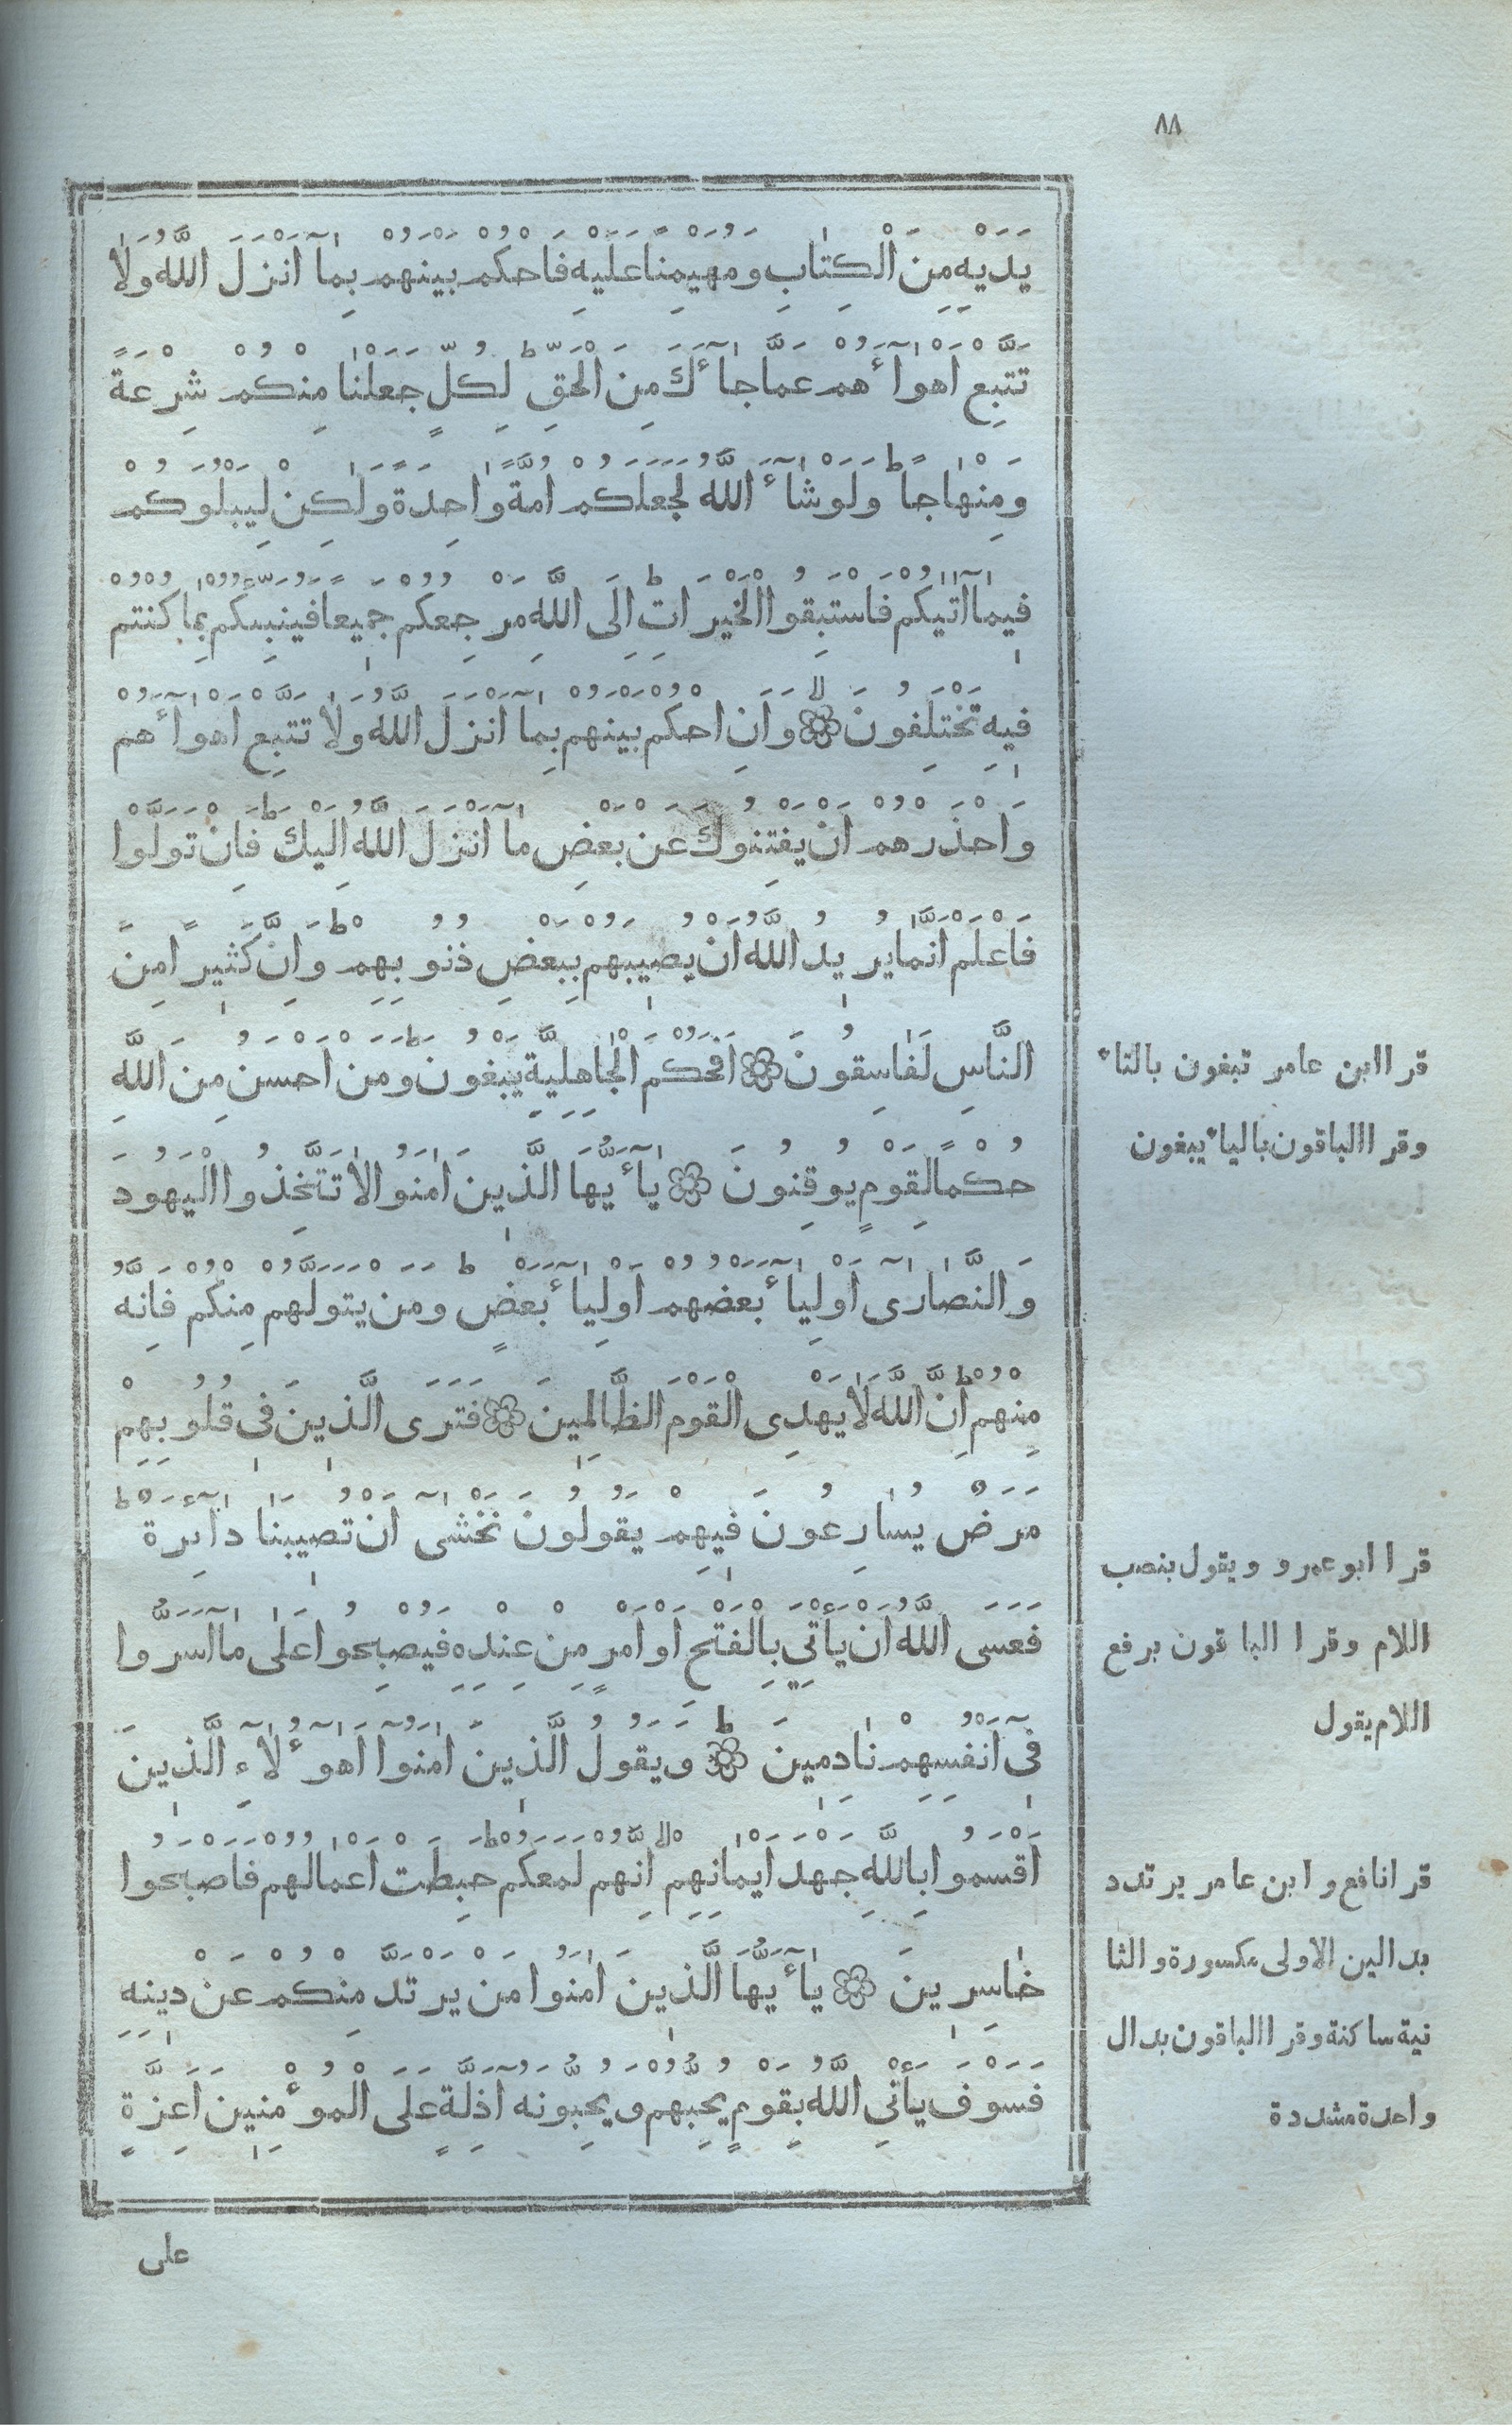 ٨٨
يَدَيْهِ مِنَ الْكِتٰابِ وَمُهَيْمِنًا عَلَيْهِ فَاحْكُمْ بَيْنَهُمْ بِمٰٓا اَنْزَلَ اللّٰهُ وَلٰا
تَتَّبِعْ اَهْوٰٓاءَهُمْ عَمّٰا جٰٓاءَكَ مِنَ الْحَقِّ ط لِكُلٍّ جَعَلْنٰا مِنْكُمْ شِرْعَةً
وَمِنْهٰاجًا ط وَلَوْ شٰٓاءَ اللّٰهُ لَجَعَلَكُمْ اُمَّةً وٰاحِدَةً وَلٰكِنْ لِيَبْلُوَكُمْ
فِيمٰٓا اٰتٰيكُمْ فَاسْتَبِقُوا الْخَيْرَاتِ ط اِلَى اللّٰهِ مَرْجِعُكُمْ جَمِيعًا فَيُنَبِّئُكُمْ بِمٰا كُنْتُمْ
فِيهِ تَخْتَلِفُونَ لا وَاَنِ احْكُمْ بَيْنَهُمْ بِمٰٓا اَنْزَلَ اللّٰهُ وَلٰا تَتَّبِعْ اَهْوٰٓاءَهُمْ
وَاحْذَرْهُمْ اَنْ يَفْتِنُوكَ عَنْ بَعْضِ مٰٓا اَنْزَلَ اللّٰهُ اِلَيْكَ ط فَاِنْ تَوَلَّوْا
فَاعْلَمْ اَنَّمٰا يُرِيدُ اللّٰهُ اَنْ يُصِيبَهُمْ بِبَعْضِ ذُنُوبِهِمْ ط وَاِنَّ كَثِيرًا مِنَ
النَّاسِ لَفٰاسِقُونَ اَفَحُكْمَ الْجٰاهِلِيَّةِ يَبْغُونَ ط وَمَنْ اَحْسَنُ مِنَ اللّٰهِ
حُكْمًا لِقَوْمٍ يُوقِنُونَ يٰٓاَيُّهَا الَّذِينَ اٰمَنُوا لٰا تَتَّخِذُوا الْيَهُودَ
وَالنَّصٰارٰٓى اَوْلِيٰٓاءَ بَعْضُهُمْ اَوْلِيٰٓاءُ بَعْضٍ ط وَمَنْ يَتَوَلَّهُمْ مِنْكُمْ فَاِنَّهُ
مِنْهُمْ ط اِنَّ اللّٰهَ لٰا يَهْدِى الْقَوْمَ الظّٰالِمِينَ فَتَرَى الَّذِينَ فِى قُلُوبِهِمْ
مَرَضٌ يُسٰارِعُونَ فِيهِمْ يَقُولُونَ نَخْشٰٓى اَنْ تُصِيبَنٰا دٰٓائِرَةٌ ط
فَعَسَى اللّٰهُ اَنْ يَأْتِيَ بِالْفَتْحِ اَوْ اَمْرٍ مِنْ عِنْدِهِ فَيُصْبِحُوا عَلٰى مٰٓا اَسَرُّوا
فِىٓ اَنْفُسِهِمْ نٰادِمِينَ ط وَيَقُولُ الَّذِينَ اٰمَنُوٓا اَهٰٓؤُلٰٓاءِ الَّذِينَ
اَقْسَمُوا بِاللّٰهِ جَهْدَ اَيْمٰانِهِمْ لا اِنَّهُمْ لَمَعَكُمْ ط حَبِطَتْ اَعْمٰالُهُمْ فَاَصْبَحُوا
خٰاسِرِينَ يٰٓاَيُّهَا الَّذِينَ اٰمَنُوا مَنْ يَرْتَدَّ مِنْكُمْ عَنْ دِينِهِ
فَسَوْفَ يَأْتِى اللّٰهُ بِقَوْمٍ يُحِبُّهُمْ وَيُحِبُّونَهُ اَذِلَّةٍ عَلَى الْمُؤْمِنِينَ اَعِزَّةٍ
على
قرا ابن عامر تبغون بالتاء
وقرا الباقون بالياء يبغون
قرا ابو عمرو ويقول بنصب
اللام وقرا الباقون برفع
اللام يقول
قرا نافع وابن عامر يرتدد
بدالين الاولى مكسورة والثا
نية ساكنة وقرا الباقون بدال
واحدة مشددة